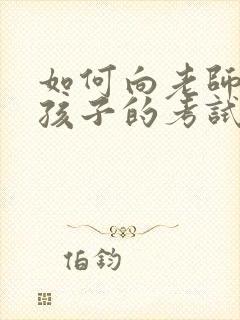 如何向老師
孩子的考試
伯鈞